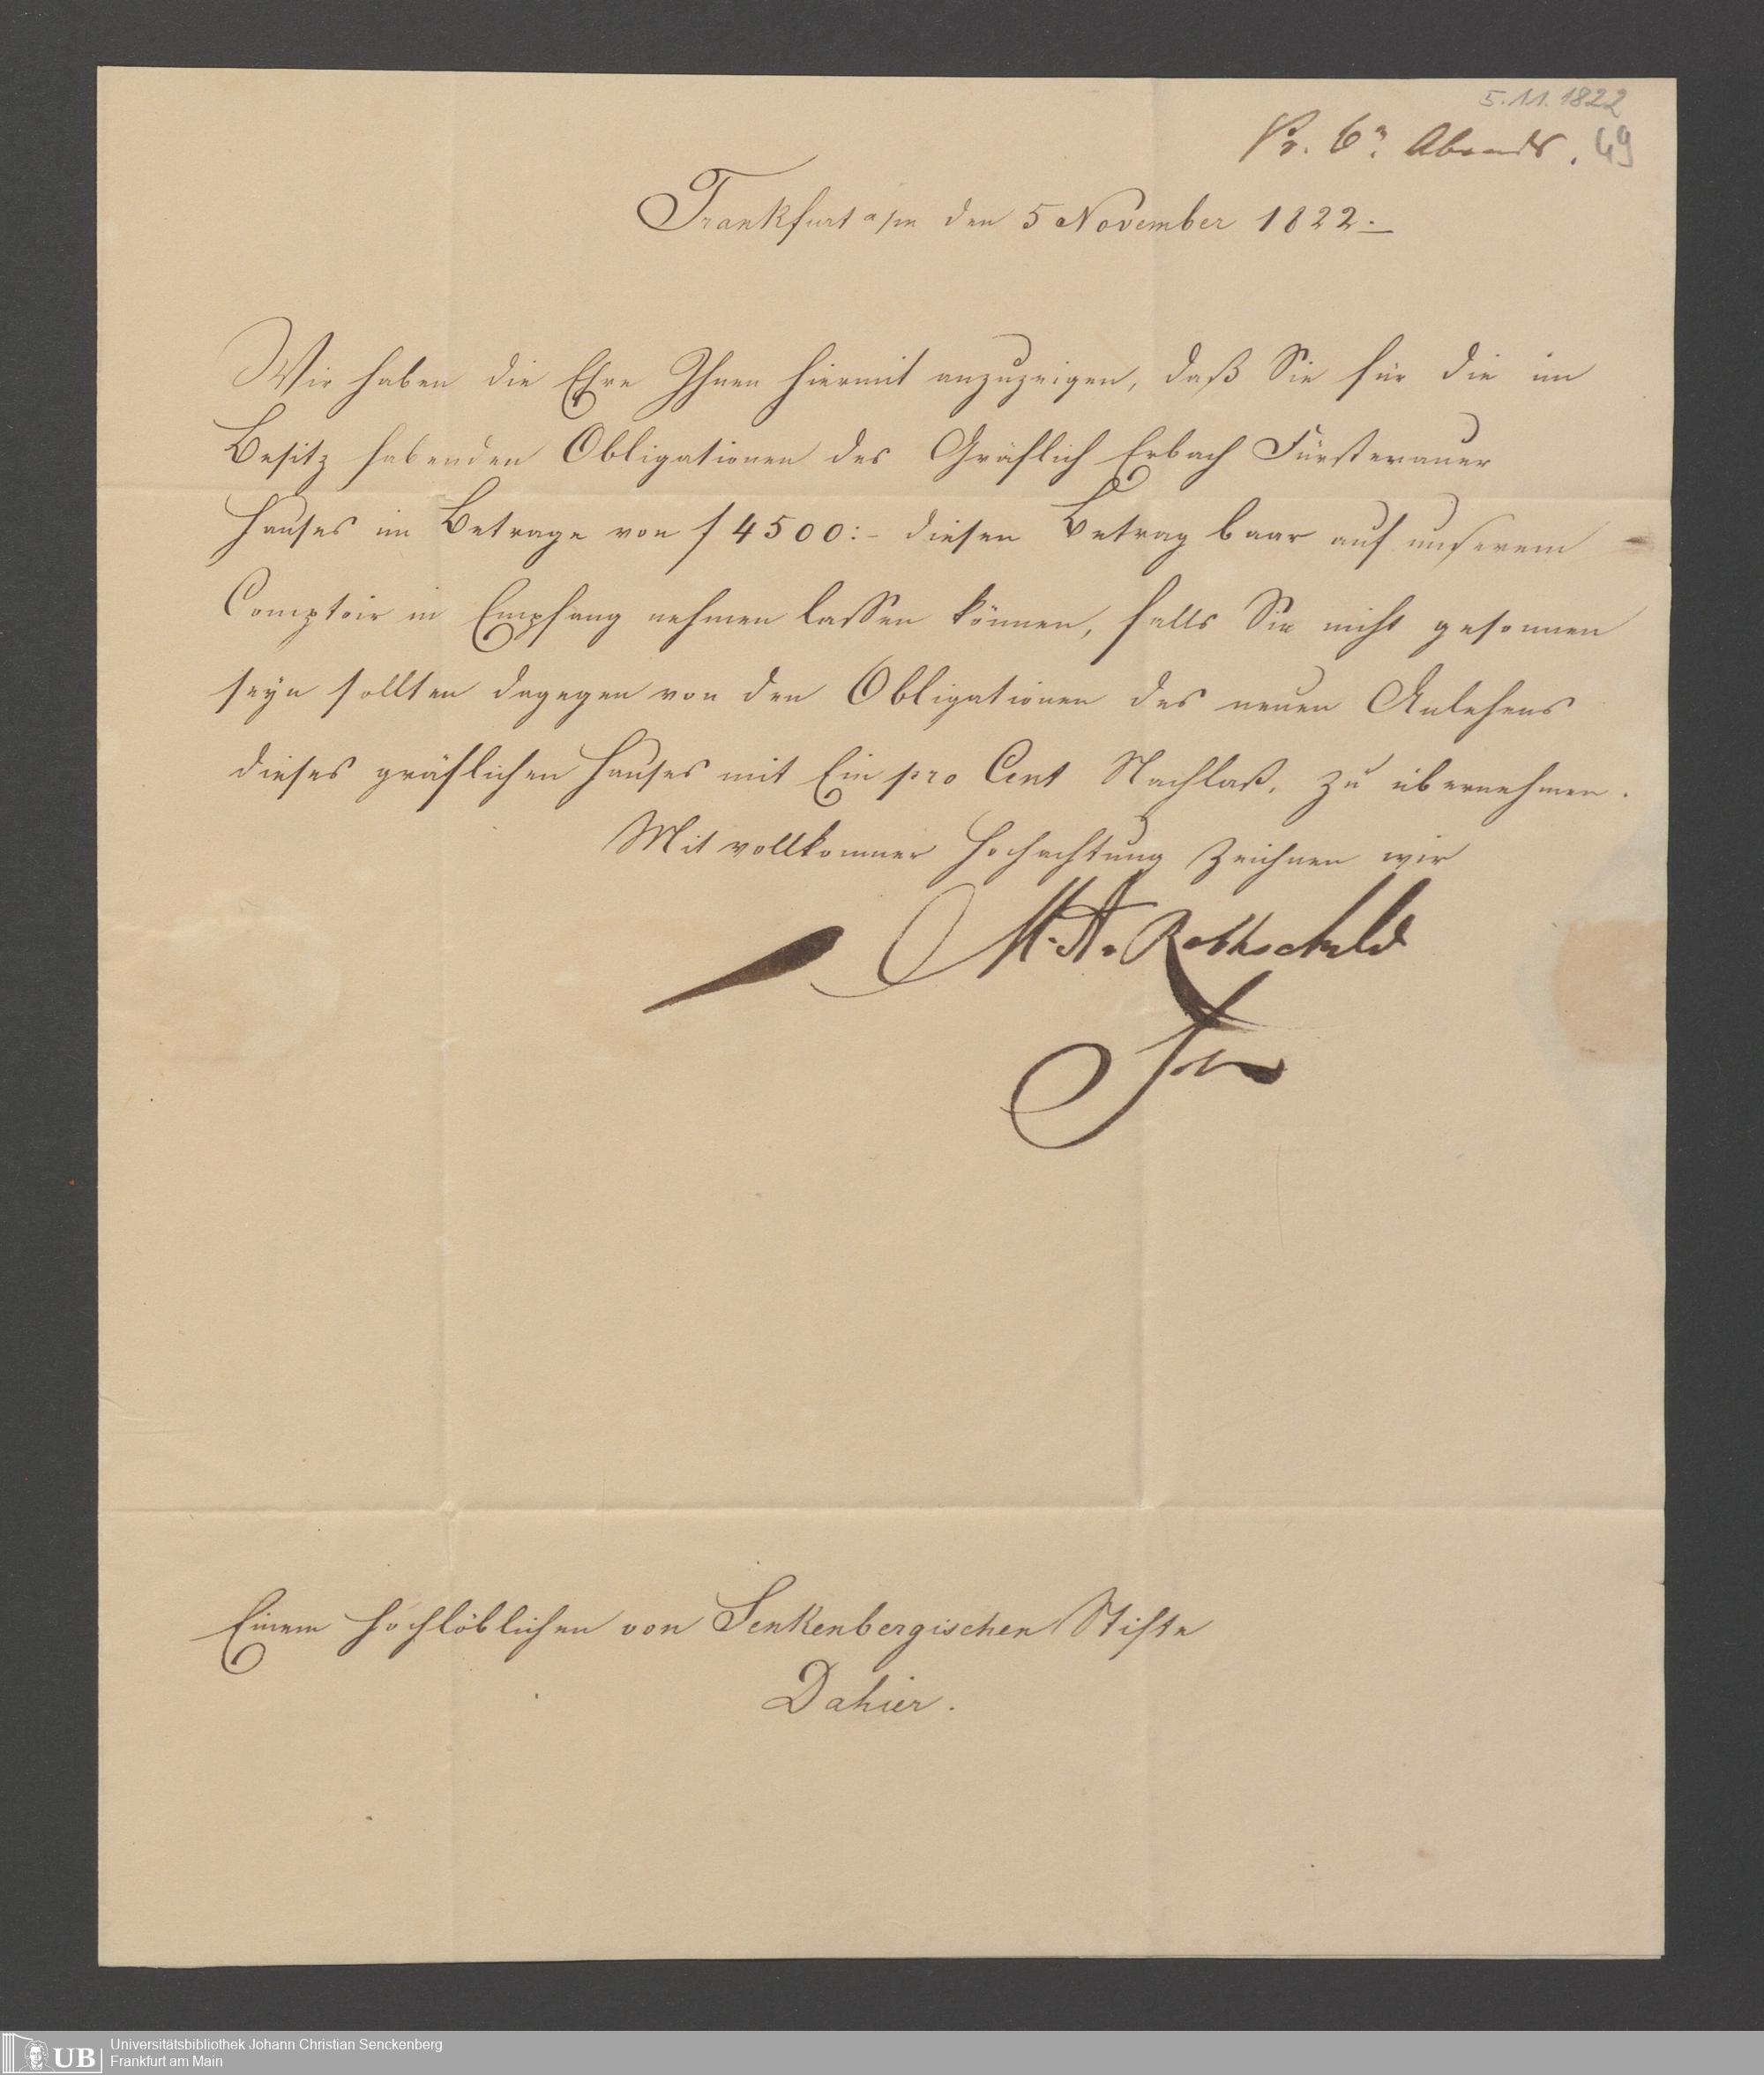 5.11.1822
Pr. 6n. Abends. 49
Frankfurt a/m den 5 November 1822:
Wir haben die Ehre Ihnen hiermit anzuzeigen, daß Sie für die im
Besitz habenden Obligationen des Gräflich Erbach Fürstenauer
Hauses im Betrage von f 4500:- diesen Betrag baar auf unserem
Comptoir in Empfang nehmen lassen können, falls Sie nicht gesonnen
seyn sollten dagegen von den Obligationen des neuen Anlehens
dieses gräflichen Hauses mit Ein pro Cent Nachlaß, zu übernehmen.
Mit vollkommner Hochachtung zeichnen wir
M. A. Rothschild
Einem hochlöblichen von Senkenbergischen Stifte
Dahier.
UB Universitätsbibliothek Johann Christian Senckenberg
Frankfurt am Main